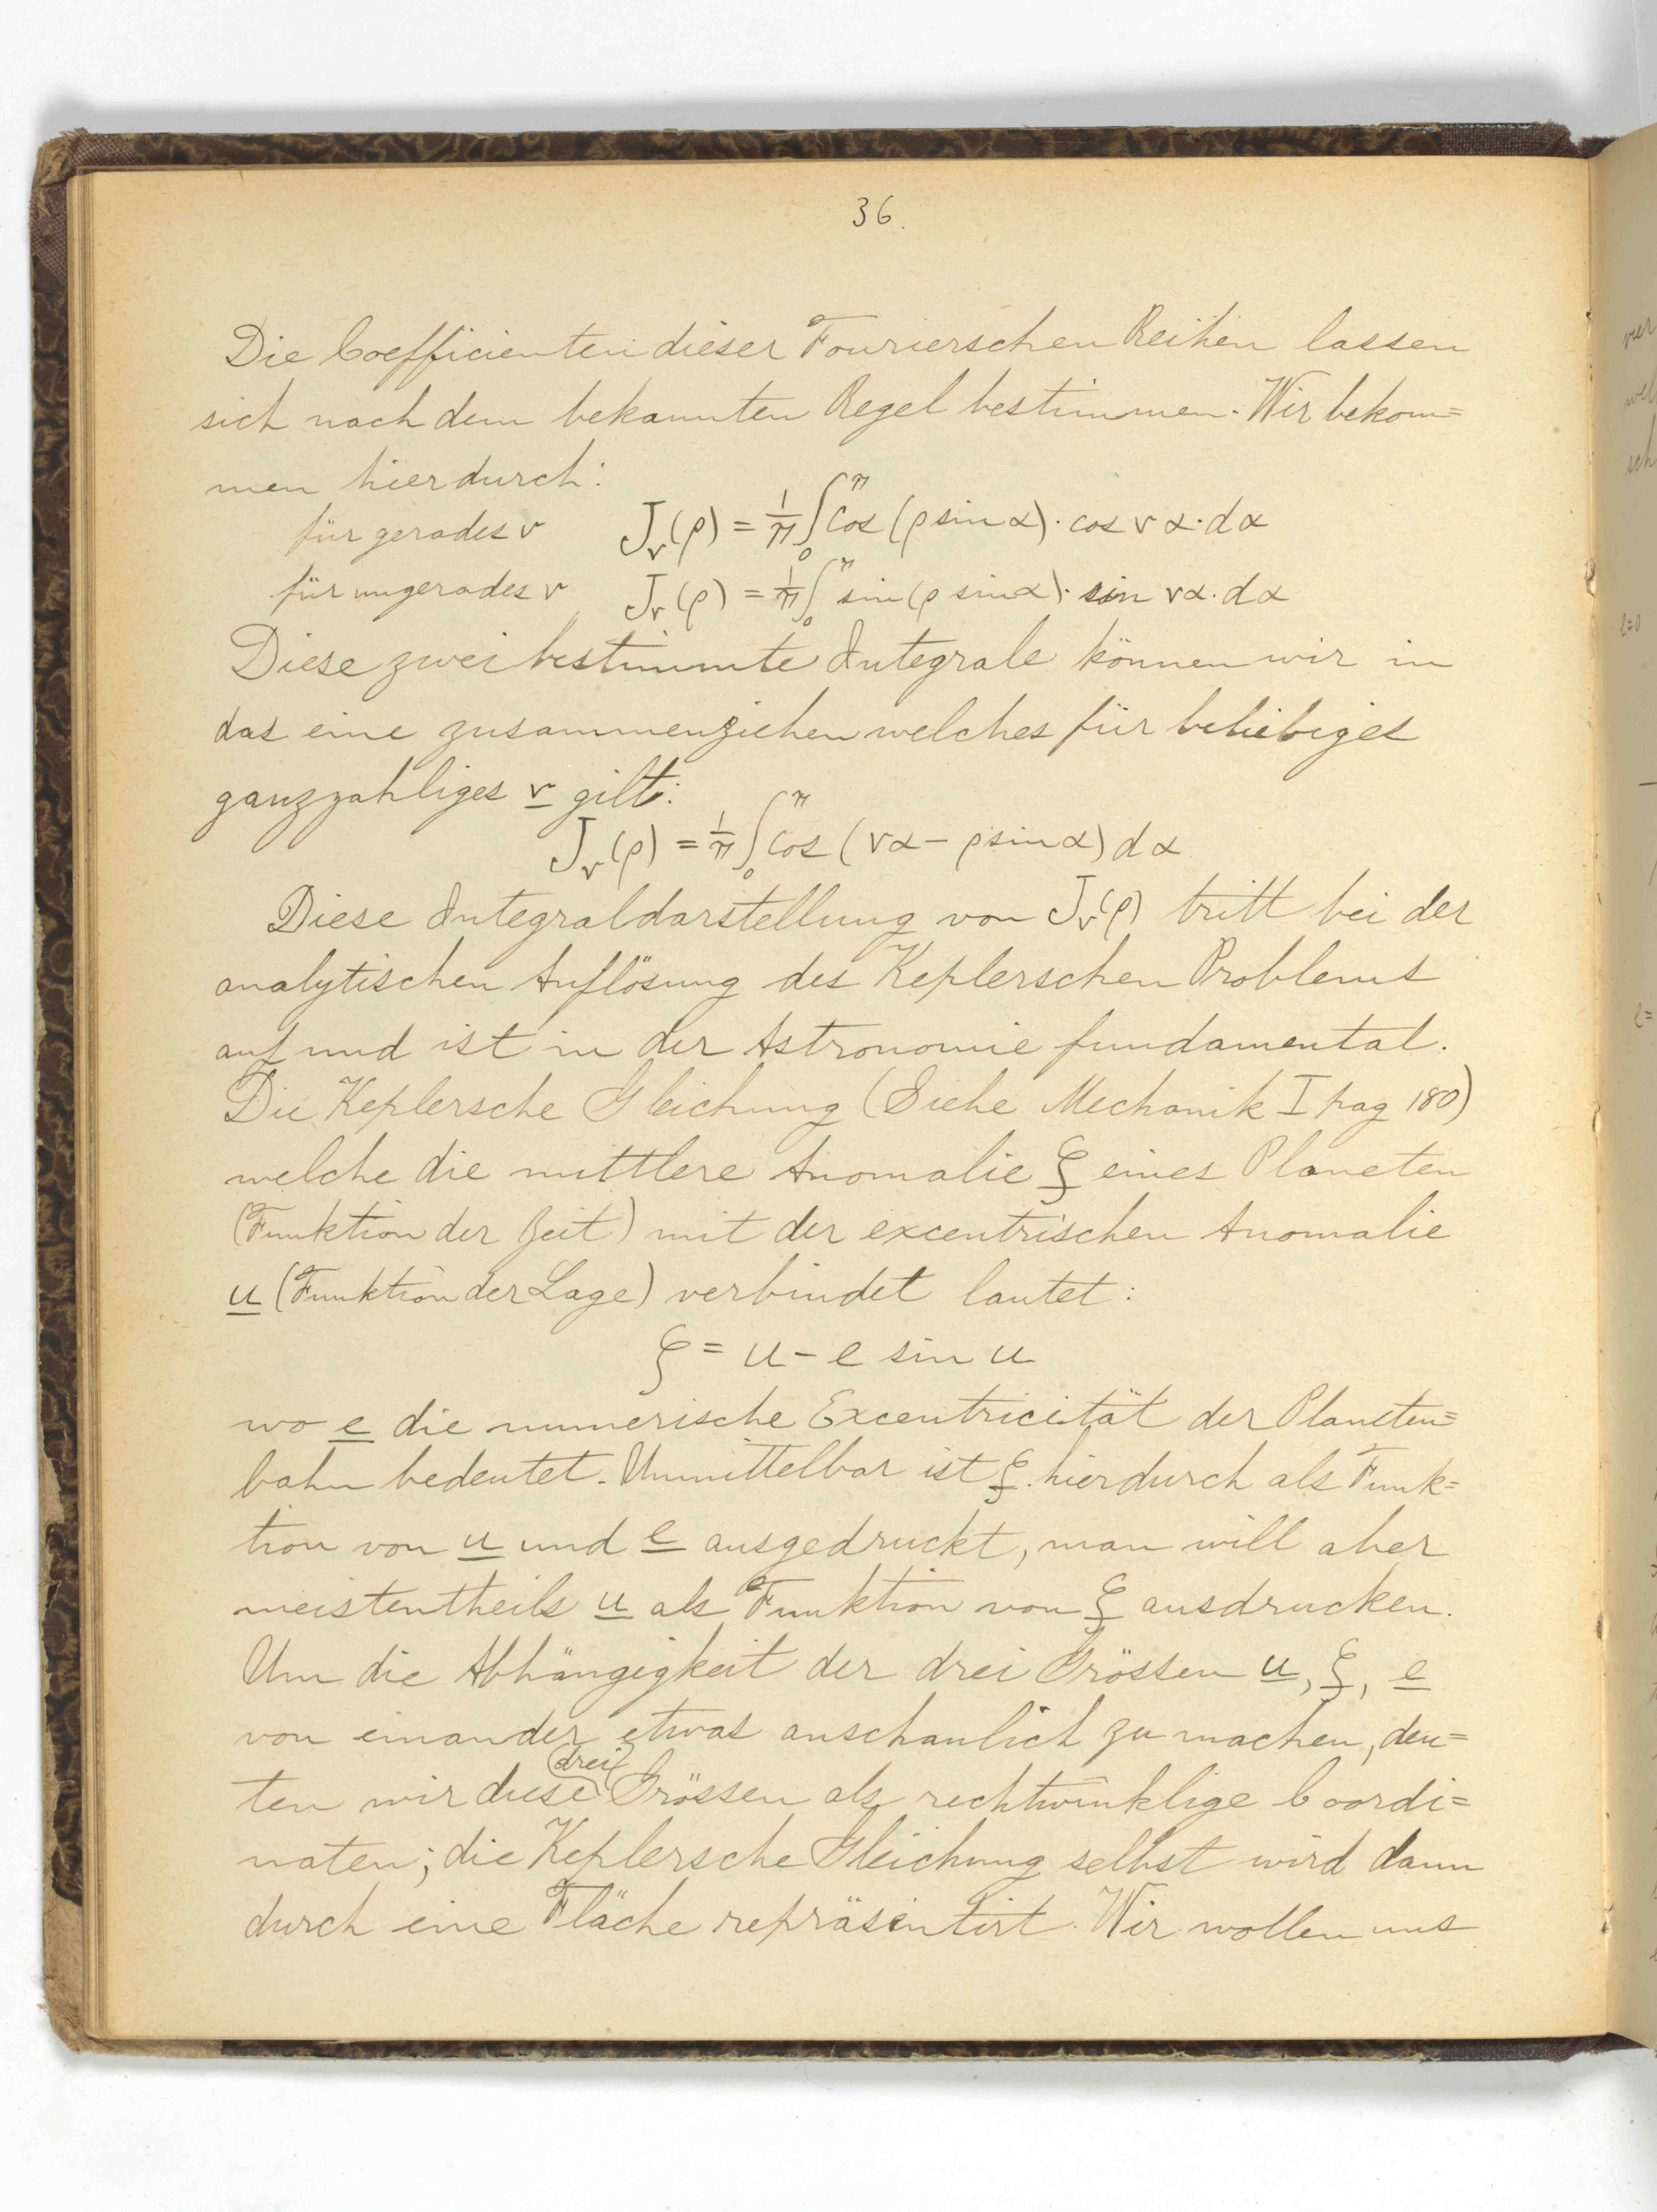 36.
Die Coefficienten dieser Fourierschen Reihen lassen
sich nach dem bekannten Regel bestimmen. Wir bekom=
men hierdurch:
für gerades ν J_ν(ρ) = 1/π ∫_0^π cos (ρ sin α) · cos ν α · dα
für ungerades ν J_ν(ρ) = 1/π ∫_0^π sin (ρ sin α) · sin να · dα
Diese zwei bestimmte Integrale können wir in
das eine zusammenziehen welches für beliebiges
ganzzahliges ν gilt:
J_ν(ρ) = 1/π ∫_0^π cos (να – ρ sin α) dα
Diese Integraldarstellung von J_ν(ρ) tritt bei der
analytischen Auflösung des Keplerschen Problems
auf und ist in der Astronomie fundamental.
Die Keplersche Gleichung (Siehe Mechanik I pag 180)
welche die mittlere Anomalie ξ eines Planeten
(Funktion der Zeit) mit der excentrischen Anomalie
u (Funktion der Lage) verbindet lautet:
ξ = u – e sin u
wo e die numerische Excentricität der Planeten=
bahn bedeutet. Unmittelbar ist ξ hierdurch als Funk=
tion von u und e ausgedruckt, man will aber
meistentheils u als Funktion von ξ ausdrucken.
Um die Abhängigkeit der drei Grössen u, ξ, e
von einander etwas anschaulich zu machen, deu=
ten wir diese drei Grössen als rechtwinklige Coordi=
naten; die Keplersche Gleichung selbst wird dann
durch eine Fläche repräsentirt. Wir wollen uns